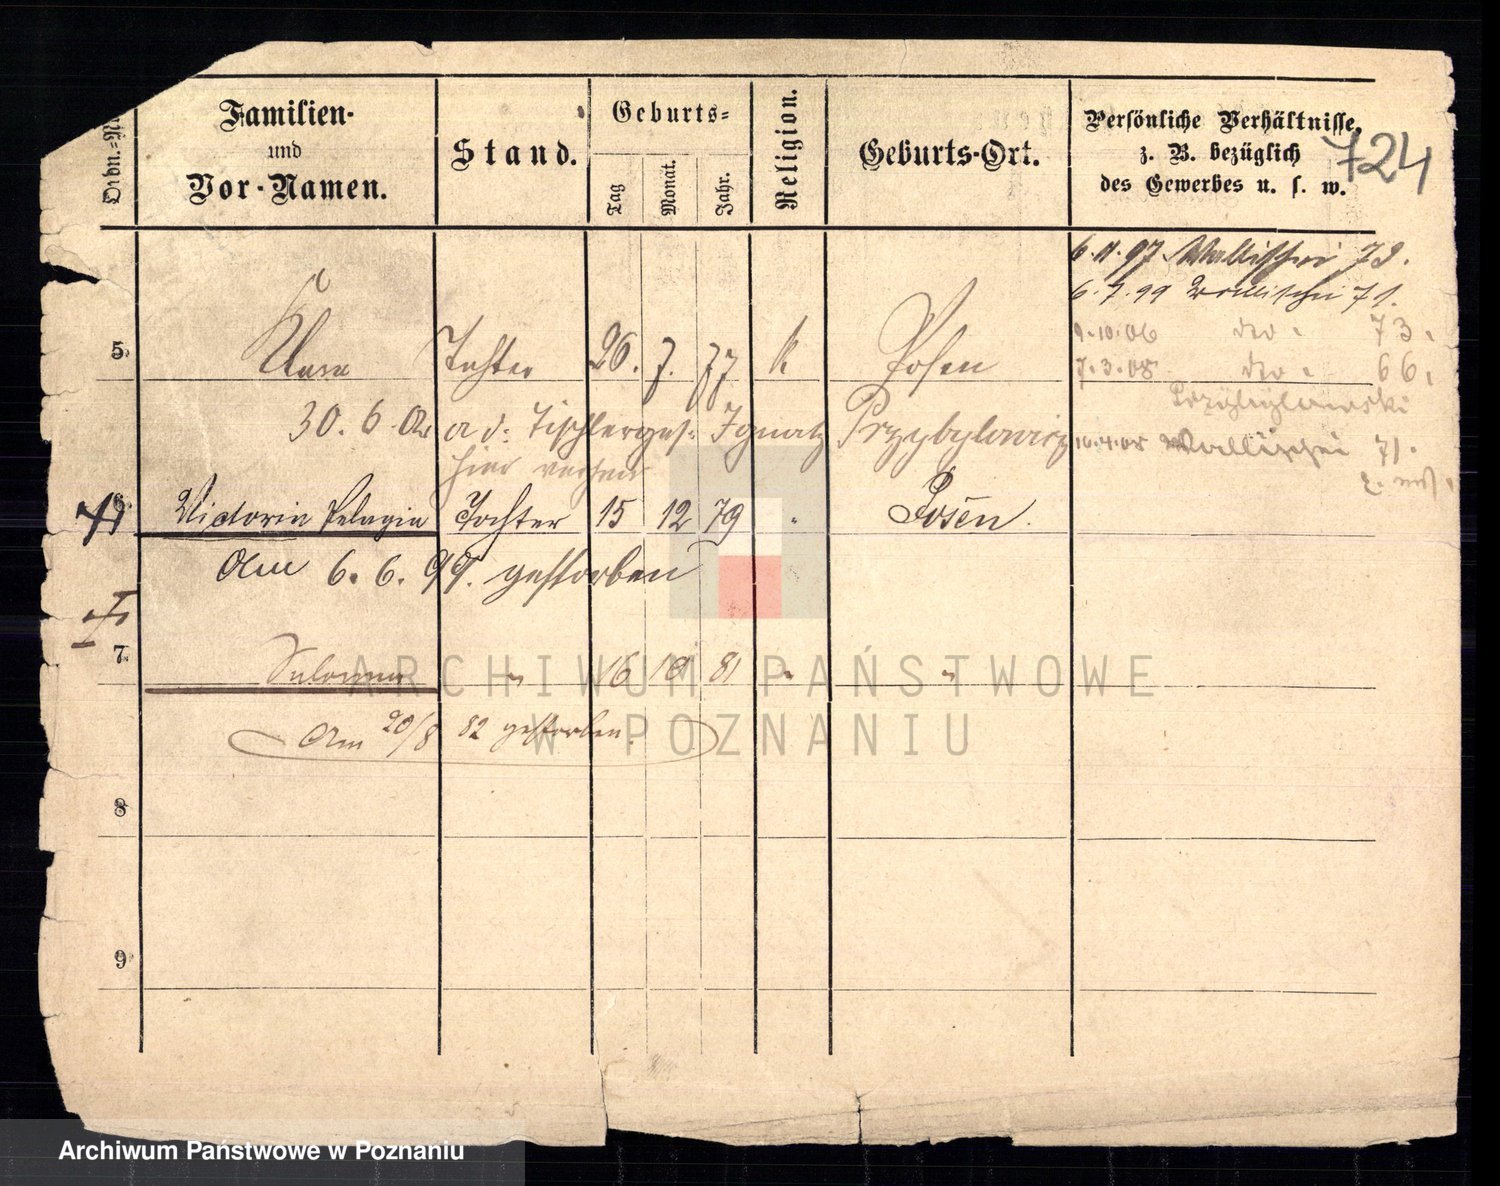 Ordn.-N
Familien-
und
Vor-Namen.
Stand.
Geburts-
Tag
Monat.
Jahr.
Religion.
Geburts-Ort.
Persönliche Verhältnisse,
z. B. bezüglich
des Gewerbes u. s. w.
724
6.11.97 Wallischei 73.
6.7.99 Wallischei 71.
9.10.06 dto. 73.
7.3.08 dto. 66.
Przybylowski
5. Klara Tochter 26. 7. 77 k Posen
10.4.08 Wallischei 71.
30. 6. a d. Tischlerges. Ignatz Przybylowicz
hier
6. Victoria Pelagia Tochter 15 12 79 " Posen.
Am 6. 6. 99. gestorben
7. Salomea " 16 10 81 " "
Am 20/8 82 gestorben.
8
9
ARCHIWUM PAŃSTWOWE
W POZNANIU
Archiwum Państwowe w Poznaniu